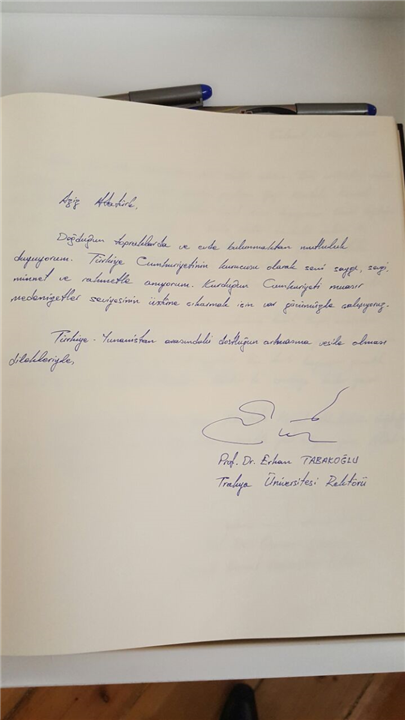 Aziz Atatürk,
Doğduğun topraklarda ve evde bulunmaktan mutluluk
duyuyorum. Türkiye Cumhuriyetinin kurucusu olarak seni saygı, sevgi
minnet ve rahmetle anıyorum. Kurduğun Cumhuriyeti muasır
medeniyetler seviyesinin üstüne çıkarmak için var gücümüzle çalışıyoruz.
Türkiye-Yunanistan arasındaki dostluğun artmasına vesile olması
dilekleriyle,
Prof. Dr. Erhan TABAKOĞLU
Trakya Üniversitesi Rektörü